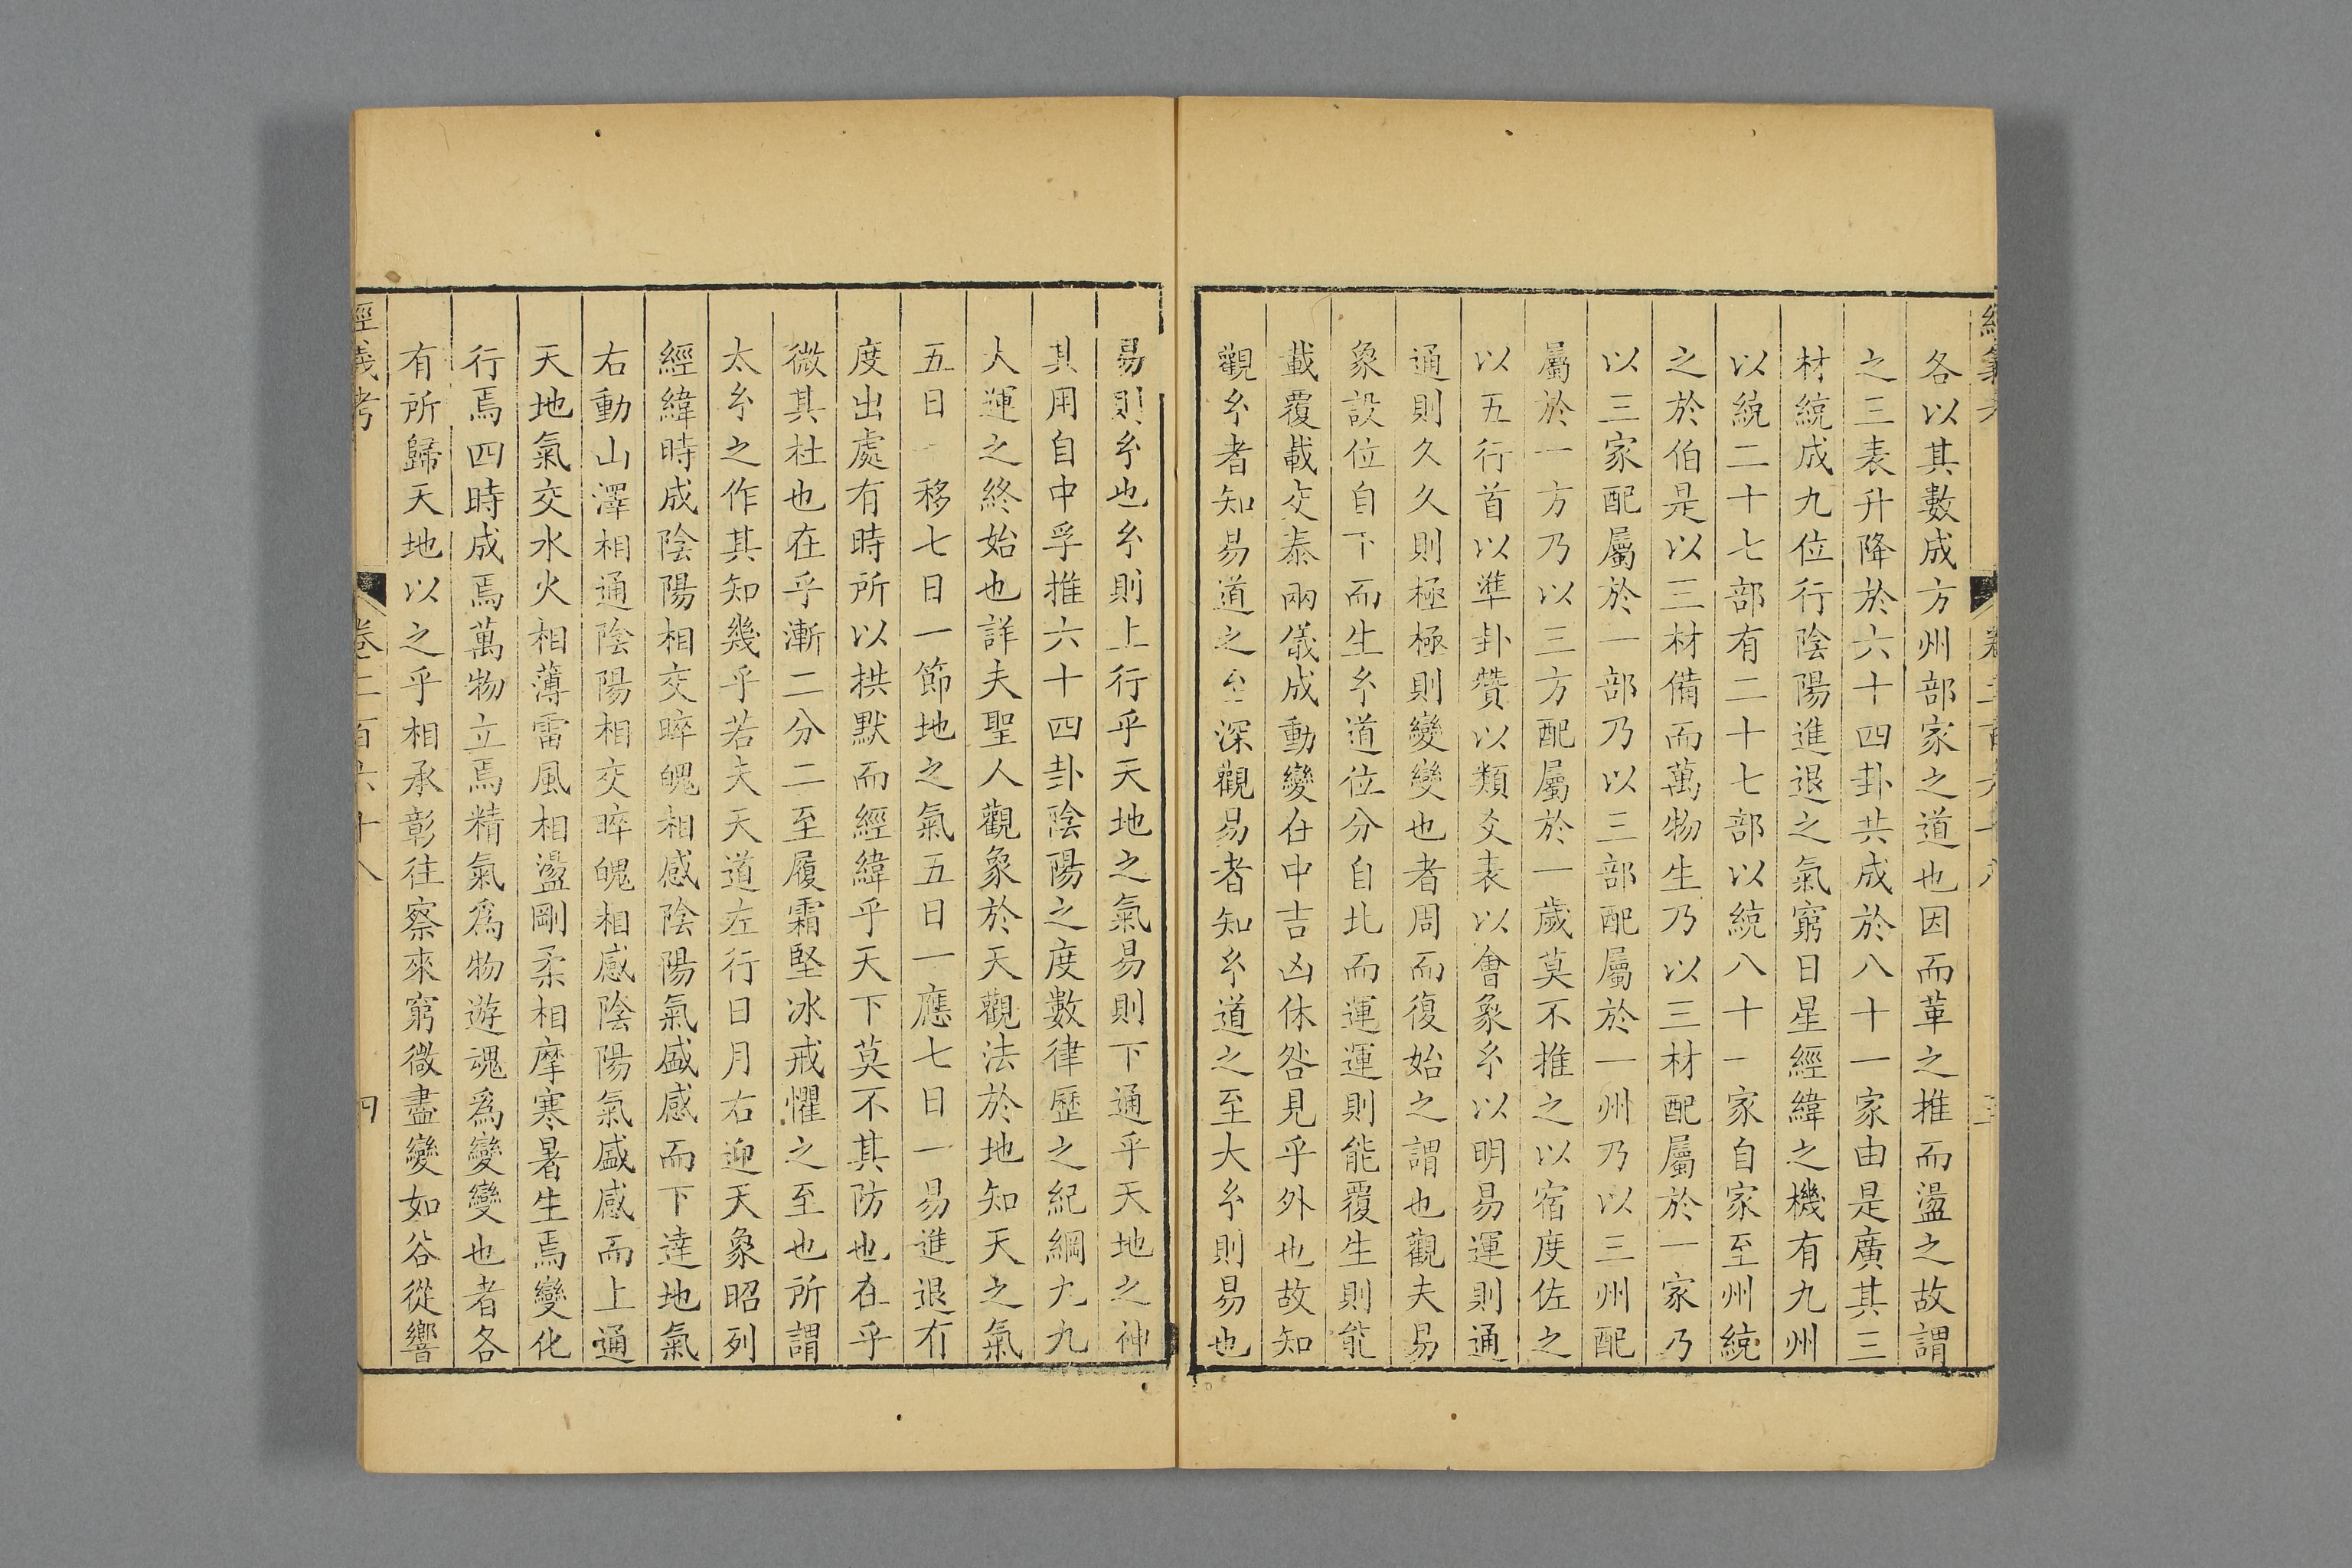 各以其數成方州部家之道也因而革之推而盪之故謂
之三表升降於六十四卦共成於八十一家由是廣其三
材統成九位行陰陽進退之氣窮日星經緯之機有九州
以統二十七部有二十七部以統八十一家自家至州統
之於伯是以三材備而萬物生乃以三材配屬於一家乃
以三家配屬於一部乃以三部配屬於一州乃以三州配
屬於一方乃以三方配屬於一歲莫不推之以宿度佐之
以五行首以準卦贊以類爻表以會象𤣥以明易運則通
通則久久則極極則變變也者周而復始之謂也觀夫易
象設位自下而生𤣥道位分自北而運運則能覆生則能
載覆載交泰兩儀成動變在中吉凶休咎見乎外也故知
觀𤣥者知易道之至深觀易者知𤣥道之至大𤣥則易也
易則𤣥也𤣥則上行乎天地之氣易則下通乎天地之神
其用自中孚推六十四卦陰陽之度數律歷之紀綱九九
大運之終始也詳夫聖人觀象於天觀法於地知天之氣
五日一移七日一節地之氣五日一應七日一易進退有
度出處有時所以拱默而經緯乎天下莫不其防也在乎
微其杜也在乎漸二分二至履霜堅冰戒懼之至也所謂
太𤣥之作其知幾乎若夫天道左行日月右迎天象昭列
經緯時成陰陽相交晬魄相感陰陽氣盛感而下達地氣
右動山澤相通陰陽相交晬魄相感陰陽氣盛感而上通
天地氣交水火相薄雷風相盪剛柔相摩寒暑生焉變化
行焉四時成焉萬物立焉精氣爲物遊魂爲變變也者各
有所歸天地以之乎相承彰往察來窮微盡變如谷從響
經義考
卷二百六十八
四